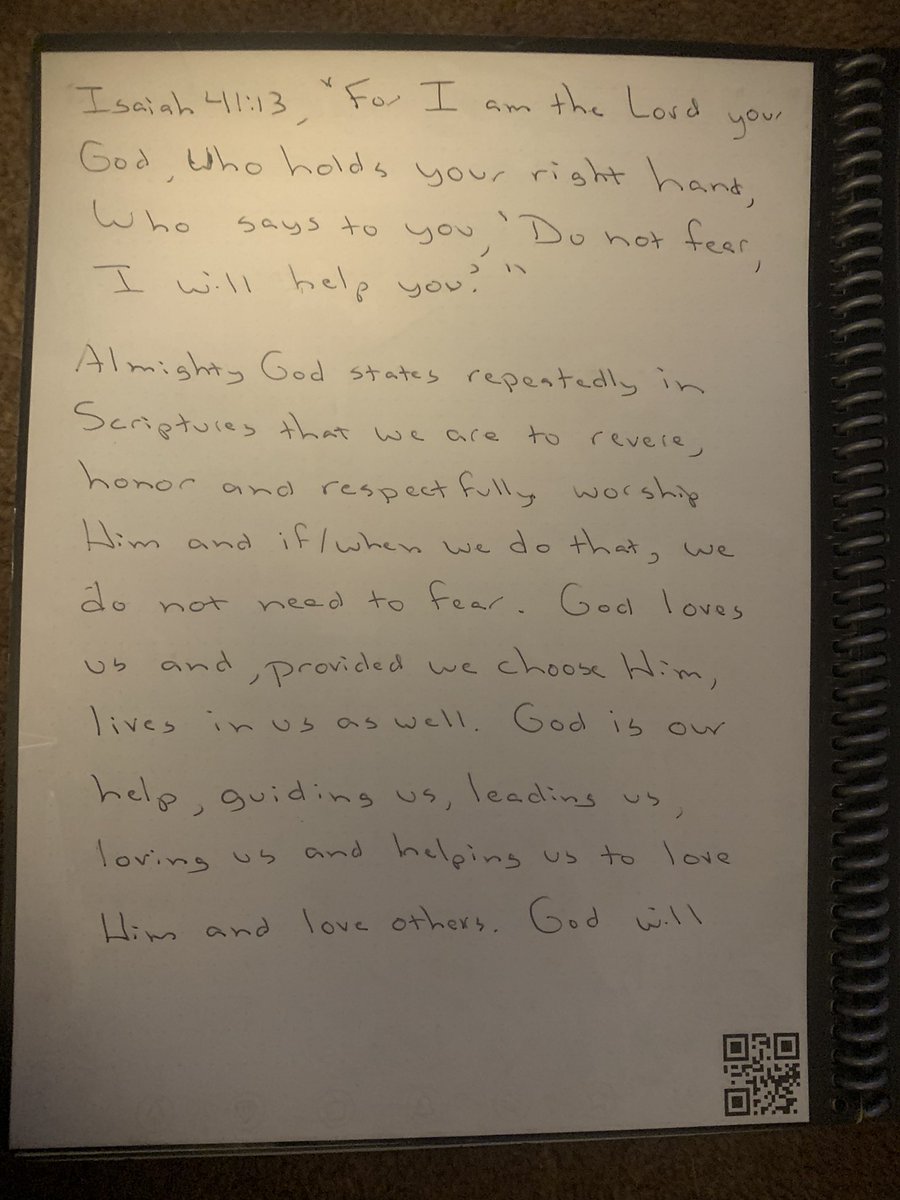 Isaiah 41:13, "For I am the Lord your
God, Who holds your right hand,
Who says to you, 'Do not fear,
I will help you.'"
Almighty God states repeatedly in
Scriptures that we are to revere,
honor and respectfully worship
Him and if/when we do that, we
do not need to fear. God loves
us and, provided we choose Him,
lives in us as well. God is our
help, guiding us, leading us,
loving us and helping us to love
Him and love others. God will